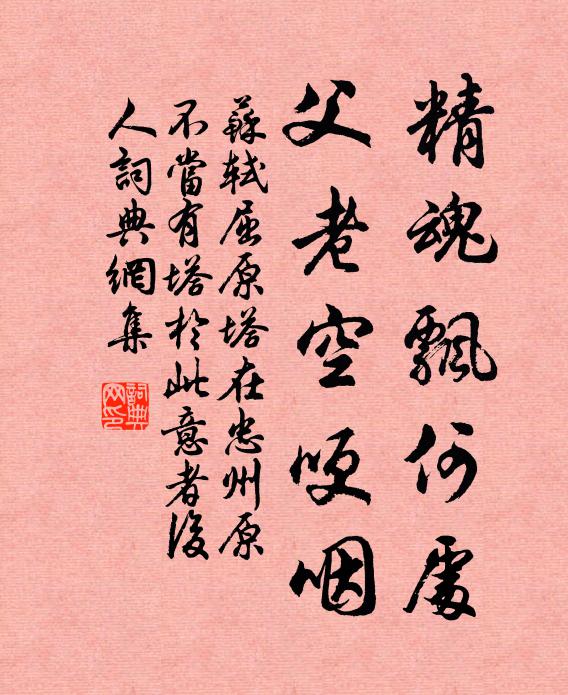 精魂飄何處
父老空哽咽
蘇軾屈原塔在忠州原
不當有塔於此意者後
人詞典網集
詞典
网印